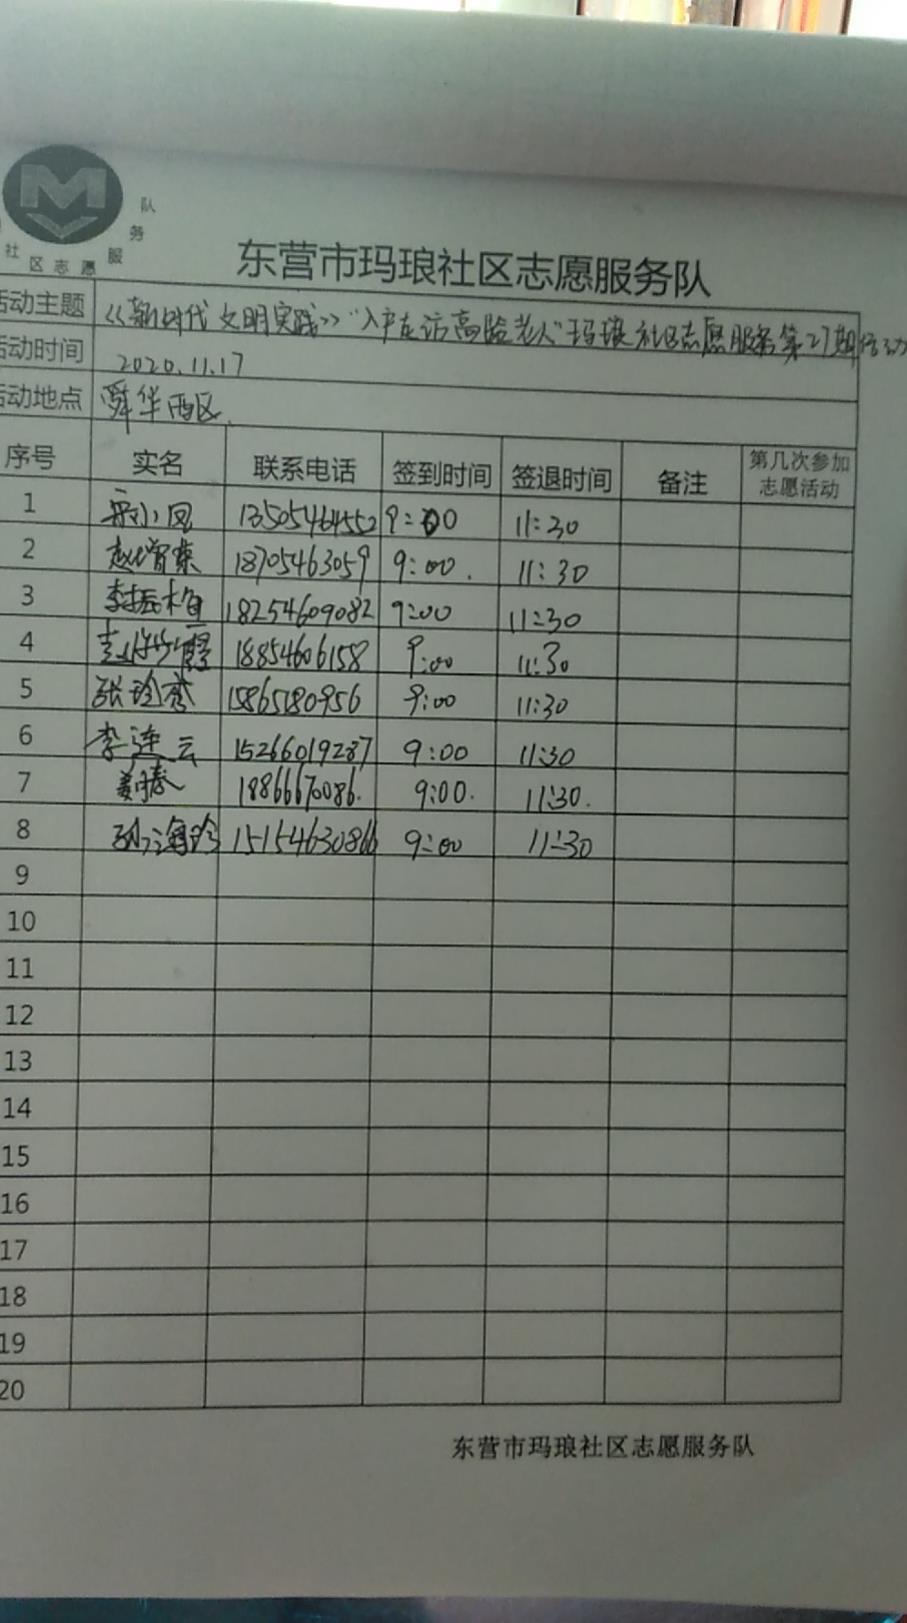 M
社区志愿服务队
东营市玛琅社区志愿服务队
活动主题 《新时代文明实践》"入户走访高龄老人"玛琅社区志愿服务第27期活动
活动时间 2020.11.17
活动地点 舜华西区.
序号 实名 联系电话 签到时间 签退时间 备注 第几次参加志愿活动
1 小凤 13505464552 9:00 11:30
2 赵增荣 18705463059 9:00. 11:30
3 李振梅 18254609082 9:00 11:30
4 18854606158 9:00 11:30
5 张玲秀 15865780956 9:00 11:30
6 李连云 15266019287 9:00 11:30
7 18866670086. 9:00. 11:30.
8 孙海玲 15154630866 9:00 11:30
9
10
11
12
13
14
15
16
17
18
19
20
东营市玛琅社区志愿服务队